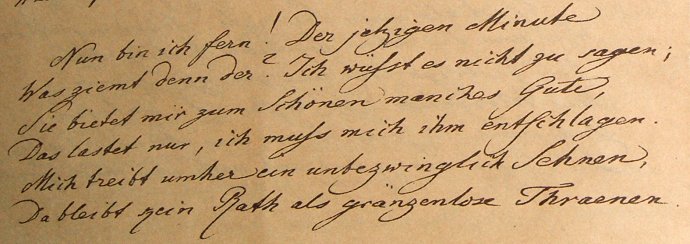 Nun bin ich fern! Der jetzigen Minute
Was ziemt denn der? Ich wüsst es nicht zu sagen;
Sie bietet mir zum Schönen manches Gute,
Das lastet nur, ich muss mich ihm entschlagen.
Mich treibt umher ein unbezwinglich Sehnen,
Da bleibt kein Rath als gränzenlose Thraenen.